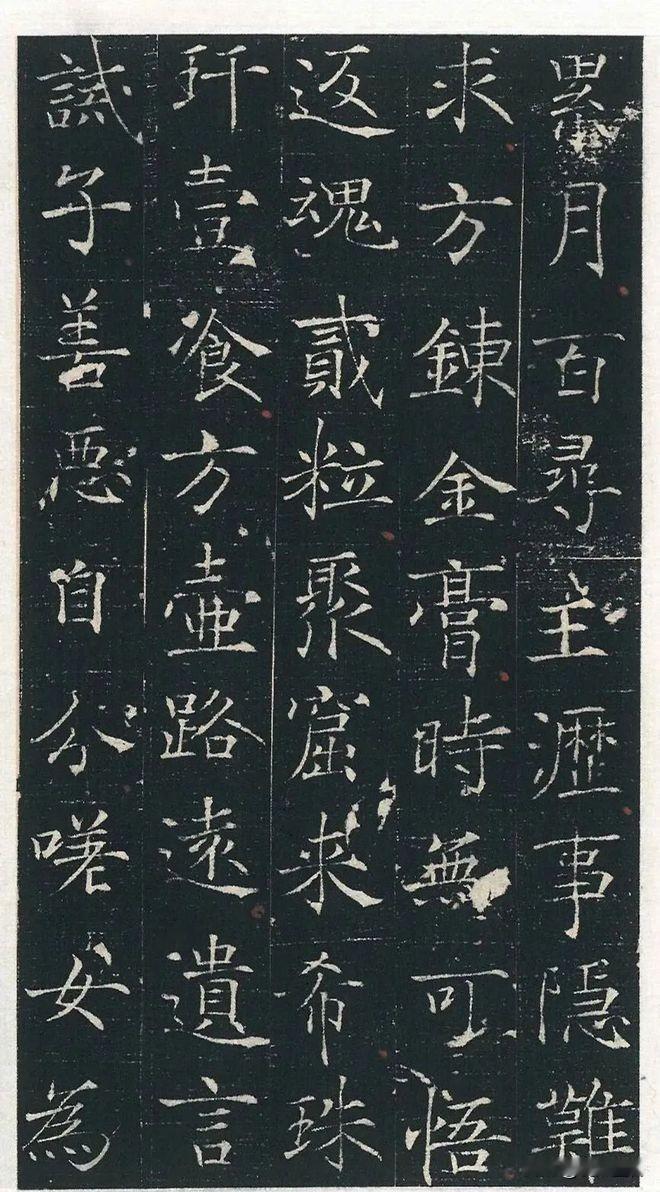 累月百尋主瀝事隱難
求方鍊金膏時無可悟
返魂貳粒聚窟来希珠
玕壹飡方壷路遠遺言
誡子善惡自分嗟女為